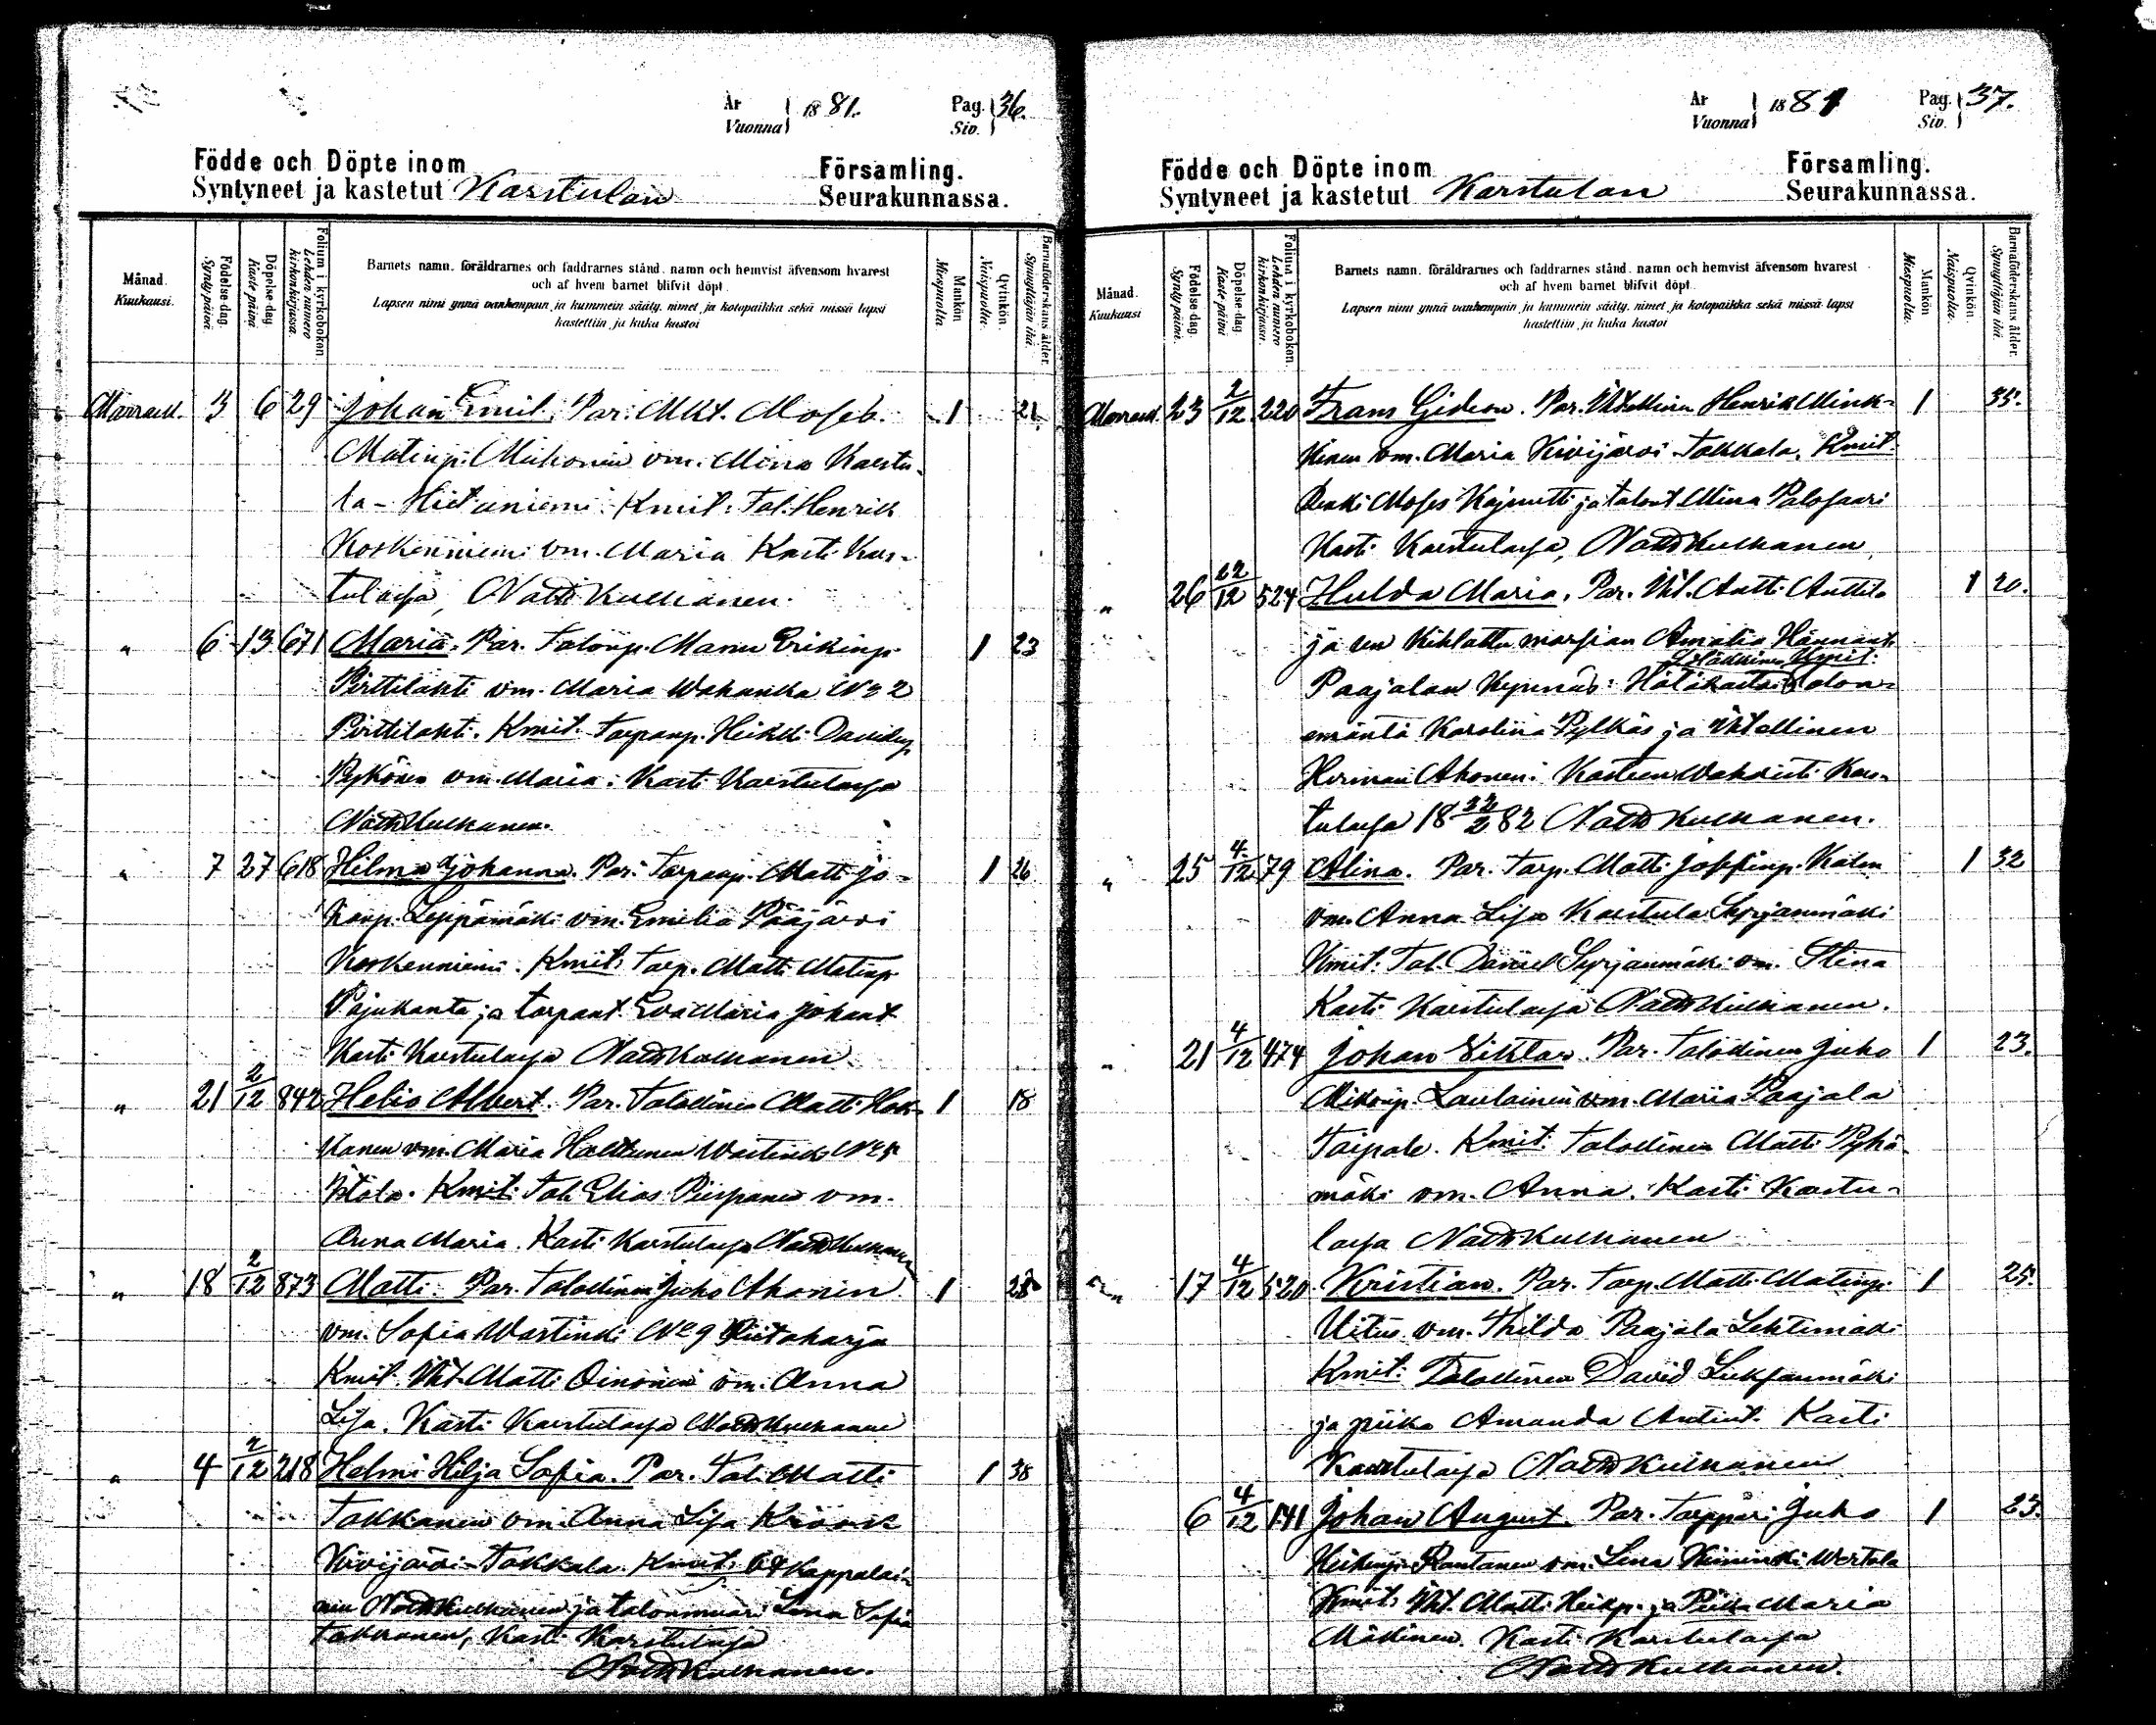 År Vuonna 1881. Pag. Siv. 36.
Födde och Döpte inom Församling.
Syntyneet ja kastetut Karstulan Seurakunnassa.
Månad. Kuukausi.
Födelse-dag. Syntypäivä.
Döpelse-dag Kaste päivä
Folium i kyrkoboken Lehden numero kirkonkirjassa
Barnets namn, föräldrarnes och faddrarnes stånd, namn och hemvist äfvensom hvarest
och af hvem barnet blifvit döpt.
Lapsen nimi ynnä vanhempain ja kummein sääty, nimet ja kotopaikka sekä missä lapsi
kastettiin ja kuka kastoi
Mankön Miespuolta.
Qvinkön. Naispuolta.
Barnaföderskans ålder. Synnyttäjän ikä.
Marrask. 3 6 29 Johan Emil. Par. Mkt. Moses 1 21.
Matinp. vm. Mina Karstu-
la - Hietaniemi. Kmit: Tal. Henrik
Koskenniemi vm. Maria Kasti Kars-
tulassa, Nath Kulhanen.
" 6 13 671 Maria. Par. Talonp. Manu Erikinp. 1 23
Pirttilahti vm. Maria Wahanka No 2
Pirttilahti. Kmit. Torpanp. Heikki Davidinp.
Pykönen vm. Maria. Kasti Karstulassa
Nath Kulhanen.
" 7 27 618 Hilma Johanna. Par. Torpanp. Matti Jo- 1 26
hanp. Leppämäki vm. Emilia Pääjärvi
Koskenniemi. Kmit: Torp. Matti Matinp.
Pajukanta ja torpant. Eva Maria Johant.
Kasti Karstulassa Nath Kulhanen
" 21 2/12 842 Helio Albert. Par. Talollinen Matti Hak- 1 18
kanen vm. Maria Wastinki No 5
Kmit: Tal. Elias Piispanen vm.
Anna Maria. Kasti Karstulassa Nath Kulhanen
" 18 2/12 873 Matti. Par. Talollinen Juho Ahonen 1 28
vm. Sofia Wastinki No 9 Riitaharju
Kmit. Itt. Matti Oinonen vm. Anna
Lisa. Kasti Karstulassa Nath Kulhanen
" 4 2/12 218 Helmi Hilja Sofia. Par. Tal. Matti 1 38
Takkanen vm. Anna Lisa
Kivijärvi-Takkala. Kmit: Kappalai-
nen Nath Kulhanen ja talonmuori Lena Sofia
Takkanen, Kasti Karstulassa
Nath Kulhanen.
År Vuonna 1881 Pag. Siv. 37.
Födde och Döpte inom Församling.
Syntyneet ja kastetut Karstulan Seurakunnassa.
Månad. Kuukausi
Födelse-dag. Syntypäivä.
Döpelse-dag Kaste päivä
Folium i kyrkoboken. Lehden numero kirkonkirjassa.
Barnets namn, föräldrarnes och faddrarnes stånd, namn och hemvist äfvensom hvarest
och af hvem barnet blifvit döpt.
Lapsen nimi ynnä vanhempain ja kummein sääty, nimet ja kotopaikka sekä missä lapsi
kastettiin ja kuka kastoi
Mankön Miespuolta.
Qvinkön. Naispuolta.
Barnaföderskans ålder. Synnyttäjän ikä.
Marrask. 23 2/12 220 Frans Gideon. Par. Itsellinen Henrik Mink- 1 35.
kinen vm. Maria Kivijärvi-Takkala. Kmit.
Renki Moses ja talont. Mina Palosaari
Kasti Karstulassa, Nath Kulhanen,
" 26 22/12 524 Hulda Maria. Par. Itt. Antti Anttila 1 20.
ja sen kihlattu morsian Amalia
Paajalan Talon-
emäntä Karolina Pylkäs ja Itsellinen
Herman Ahonen. Kasteen Wahvisti Kars-
tulassa 18 22/2 82 Nath Kulhanen.
" 25 4/12 79 Alina. Par. Torp. Matti Josefinp. 1 32
vm. Anna Lisa Karstula Syrjänmäki
Kmit. Tal. Daniel Syrjänmäki vm. Stina
Kasti Karstulassa Nath Kulhanen.
" 21 4/12 474 Johan Sihtar. Par. Talollinen Juho 1 23.
Mikonp. Laulainen vm. Maria Paajala
Taipale. Kmit: Talollinen Matti Pyhä-
mäki vm. Anna. Kasti Karstu-
lassa Nath Kulhanen
" 17 4/12 520 Kristian. Par. Torp. Matti Matinp. 1 25.
Uitus vm. Thilda Paajala Lehtimäki
Kmit: Talollinen David
ja piika Amanda Antint. Kasti
Karstulassa Nath Kulhanen
6 4/12 141 Johan August. Par. Torppari Juho 1 23.
Heikinp. Rantanen vm. Lena Kiminki Wertala
Kmit: Itt. Matti Heikp. ja Piika Maria
Mäkinen. Kasti Karstulassa
Nath Kulhanen.